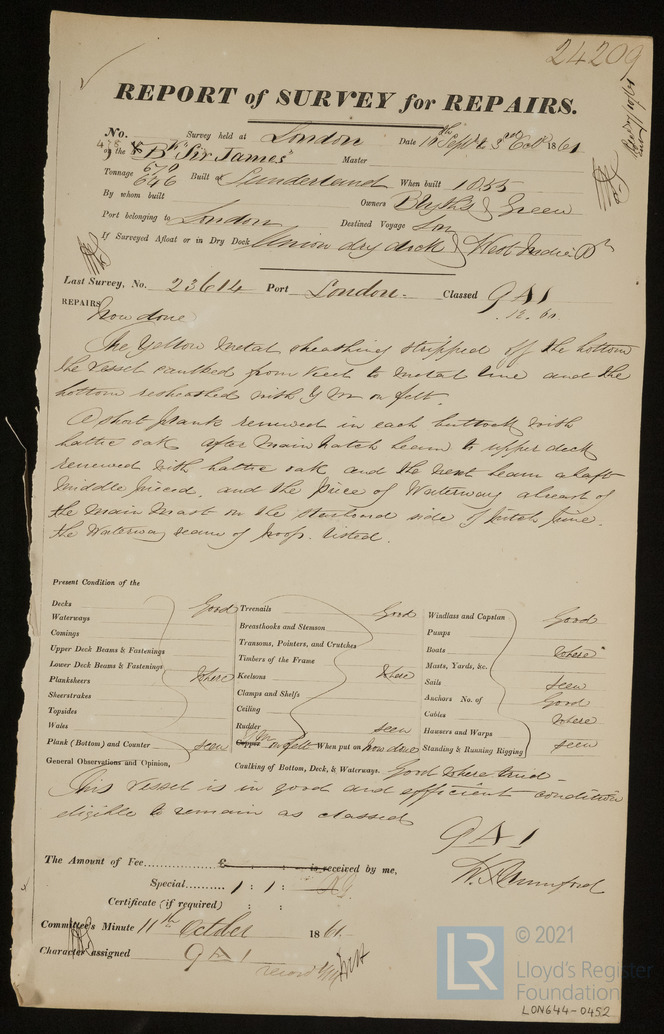 24209
REPORT of SURVEY for REPAIRS.
No. Survey held at London Date 10th Sept to 3rd Octr 1861
478 on the Bk "Sir James" Master
Tonnage 670 646 Built at Sunderland When built 1855
By whom built Owners Blyths & Green
Port belonging to London Destined Voyage Lon
If Surveyed Afloat or in Dry Dock Union dry dock & West India Dk
Last Survey, No. 23614 Port London. Classed 9 A 1
12.60
REPAIRS Now done
The Yellow Metal sheathing stripped off the bottom
the vessel caulked from keel to metal line and the
bottom resheathed with Y M on felt.
A short plank renewed in each buttock with
baltic oak after main hatch beam to upper deck
renewed with baltic oak and the next beam abaft
middle pieced, and the piece of Waterway abreast of
the Main Mast on the starboard side of pitch pine.
the Waterway seam of poop listed.
Present Condition of the
Decks Good Treenails Good Windlass and Capstan Good
Waterways Breasthooks and Stemson Pumps
Comings Transoms, Pointers, and Crutches Boats where
Upper Deck Beams & Fastenings Timbers of the Frame Masts, Yards, &c.
Lower Deck Beams & Fastenings where Keelsons where Sails seen
Planksheers Clamps and Shelfs Anchors No. of Good
Sheerstrakes Ceiling Cables where
Topsides Rudder seen Hausers and Warps
Wales Copper Y M on felt When put on now done Standing & Running Rigging seen
Plank (Bottom) and Counter seen
General Observations and Opinion, Caulking of Bottom, Deck, & Waterways. Good where tried
This vessel is in good and efficient condition
eligible to remain as classed
9 A 1
The Amount of Fee £ : : is received by me,
Special 1 : 1 :
Certificate (if required) : :
W. H. Mumford
Committee's Minute 11th October 1861.
Character assigned 9 A 1
© 2021
LR
Lloyd's Register
Foundation
LON644-0452